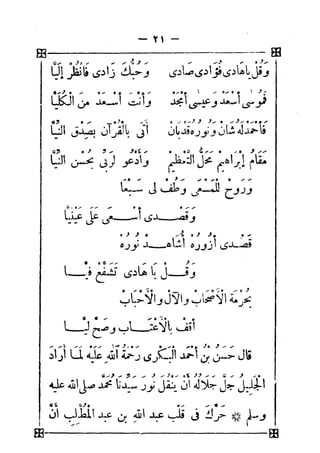 — ٢١ —
وَقُلْ يَاهَادِى فُؤَادِى صَادِى وَحُبُّكَ زَادِى فَانْظُرْ إِلَيَّا
فَمُوسَى أَسْعَدْ وَعِيسَى أَمْجَدْ وَأَنْتَ أَسْعَدْ مِنَ الْكُلِّيَّا
فَأَحْمَدْ لَهُ شَانْ وَنُورُهُ قَدْ بَانْ أَتَى بِالْقُرْآنِ بِصِدْقِ النِّيَّا
مَقَامُ إِبْرَاهِيمْ مَحَلُّ التَّعْظِيمْ وَأَدْعُو لِرَبِّى بِحُسْنِ النِّيَّا
وَرُوحْ لِلْمَسْعَى وَطُفْ لِى سَبْعَا
وَقَصْدِى أَسْعَى عَلَى عَيْنَيَّا
قَصْدِى أَزُورُهْ أُشَاهِدْ نُورُهْ
وَقُلْ يَا هَادِى تَشَفَّعْ فِيَّا
بِحُرْمَةِ الْأَصْحَابْ وَالْآلِ وَالْأَحْبَابْ
أَقِفْ بِالْأَعْتَابْ وَصَحَّ لِيَّا
قَالَ حَسَنُ بْنُ أَحْمَدَ الْبَكْرِى رَحْمَةُ اللهِ عَلَيْهِ لَمَّا أَرَادَ
الْجَلِيلُ جَلَّ جَلَالُهُ أَنْ يَنْقُلَ نُورَ سَيِّدِنَا مُحَمَّدٍ صلى الله عليه
وسلم * حَرَّكَ فِى قَلْبِ عبدِ اللهِ بنِ عبدِ الْمُطَّلِبِ أَنْ